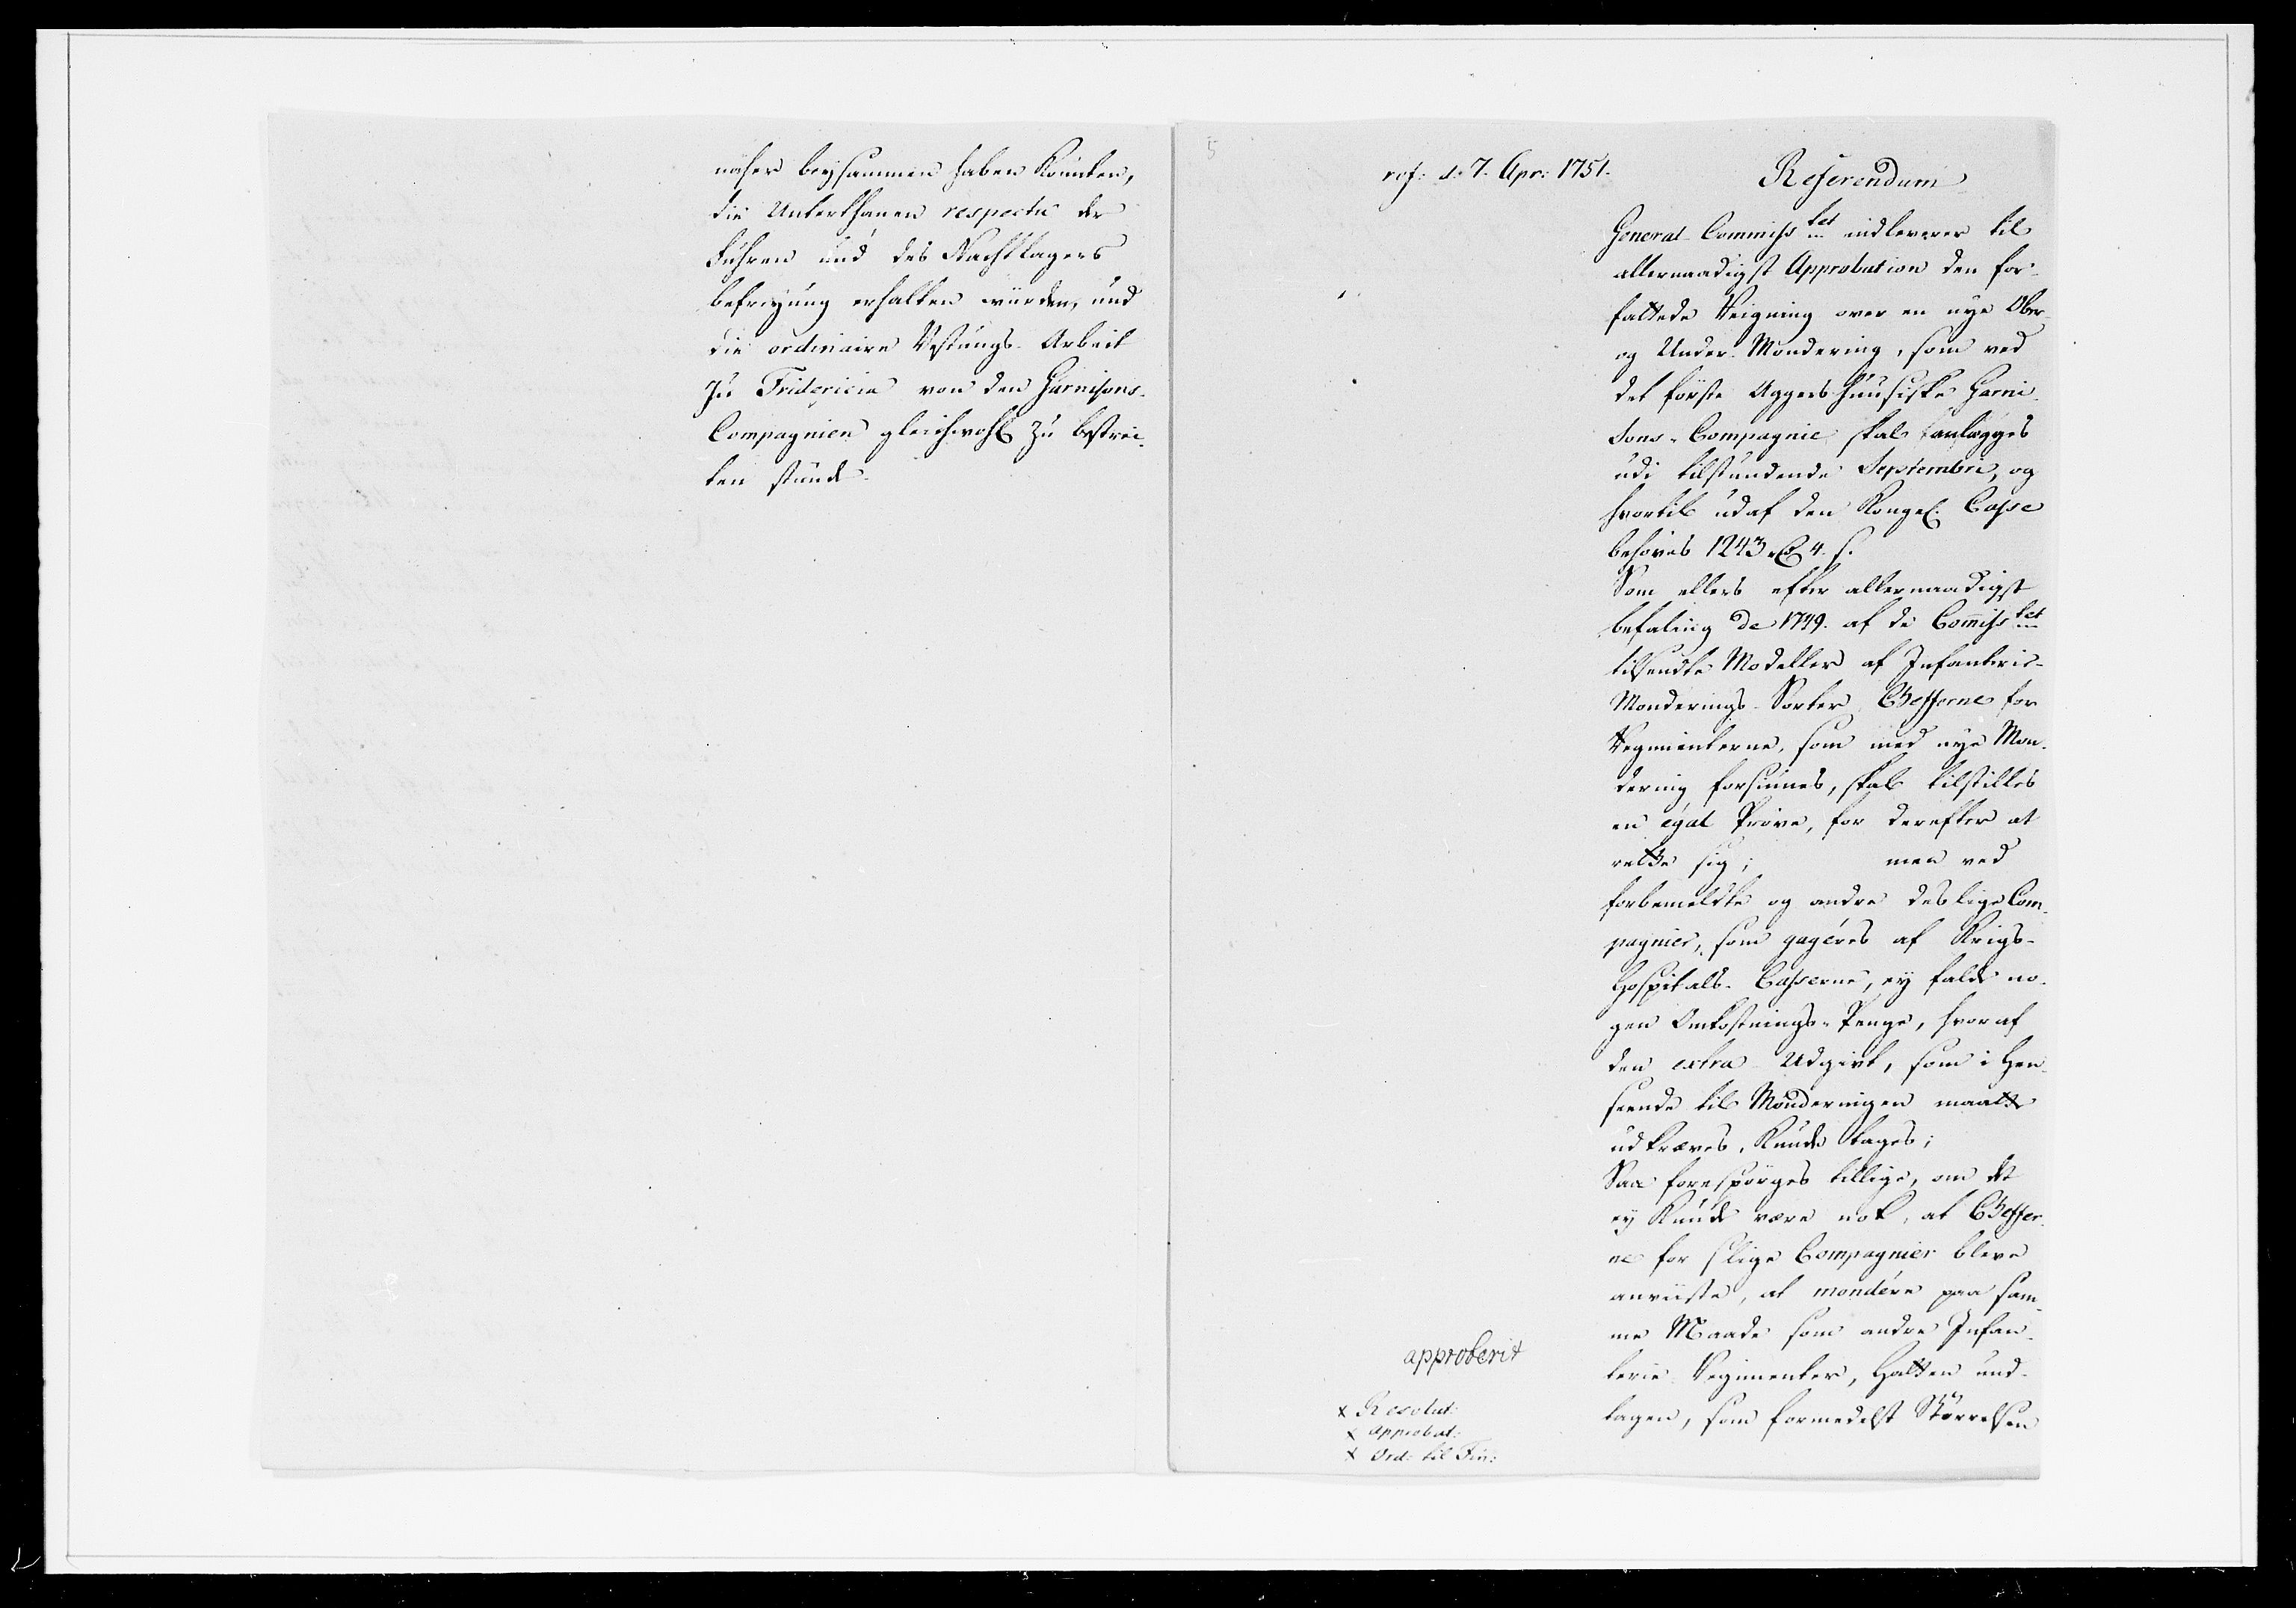 näher beysammen haben könten,
die Unterthanen respectu der
Fuhren und des Nachtlagers
befreyung erhalten würden, und
die ordinaire Vestungs-Arbeit
zu Fridericia von den Garnisons-
Compagnien gleichwohl zu bestrei-
ten stünde.
5
ref: d. 7. Apr: 1751.
Referendum
General-Commiss tet indleverer til
allernaadigst Approbation den for-
fattede Reigning over en nye Ober-
og Under-Mondering, som ved
det første Aggershuusiske Garni-
sons-Compagnie skal anlægges
udi tilstundende Septembri, og
hvortil udaf den Kongel. Casse
behøves 1243 rd 4 s.
Som ellers efter allernaadigst
befaling de 1749. af de Com̅iss tet
tilsendte Modeller af Infanterie-
Monderings-Sorter Chefferne for
Regimenterne, som med nye Mon-
dering forsiunes, skal tilstilles
en égal Prøve, for derefter at
rette sig; men ved
forbemeldte og andre deslige Com-
pagnier, som gagéres af Krigs-
Hospitals-Casserne, ey falde no-
gen Omkostnings-Penge, hvoraf
den extra Udgivt, som i Hen-
seende til Monderingen maatte
udkræves, kunde tages;
Saa forespørges tillige, om det
ey kunde være nok, at Cheffer-
ne for slige Compagnier bleve
anviiste, at mondére paa sam-
me Maade som andre Infan-
terie-Regimenter, Hatten und-
tagen, som formedelst Størrelsen
approberit
x Resolut:
x approbat:
x Ord: til Fin: